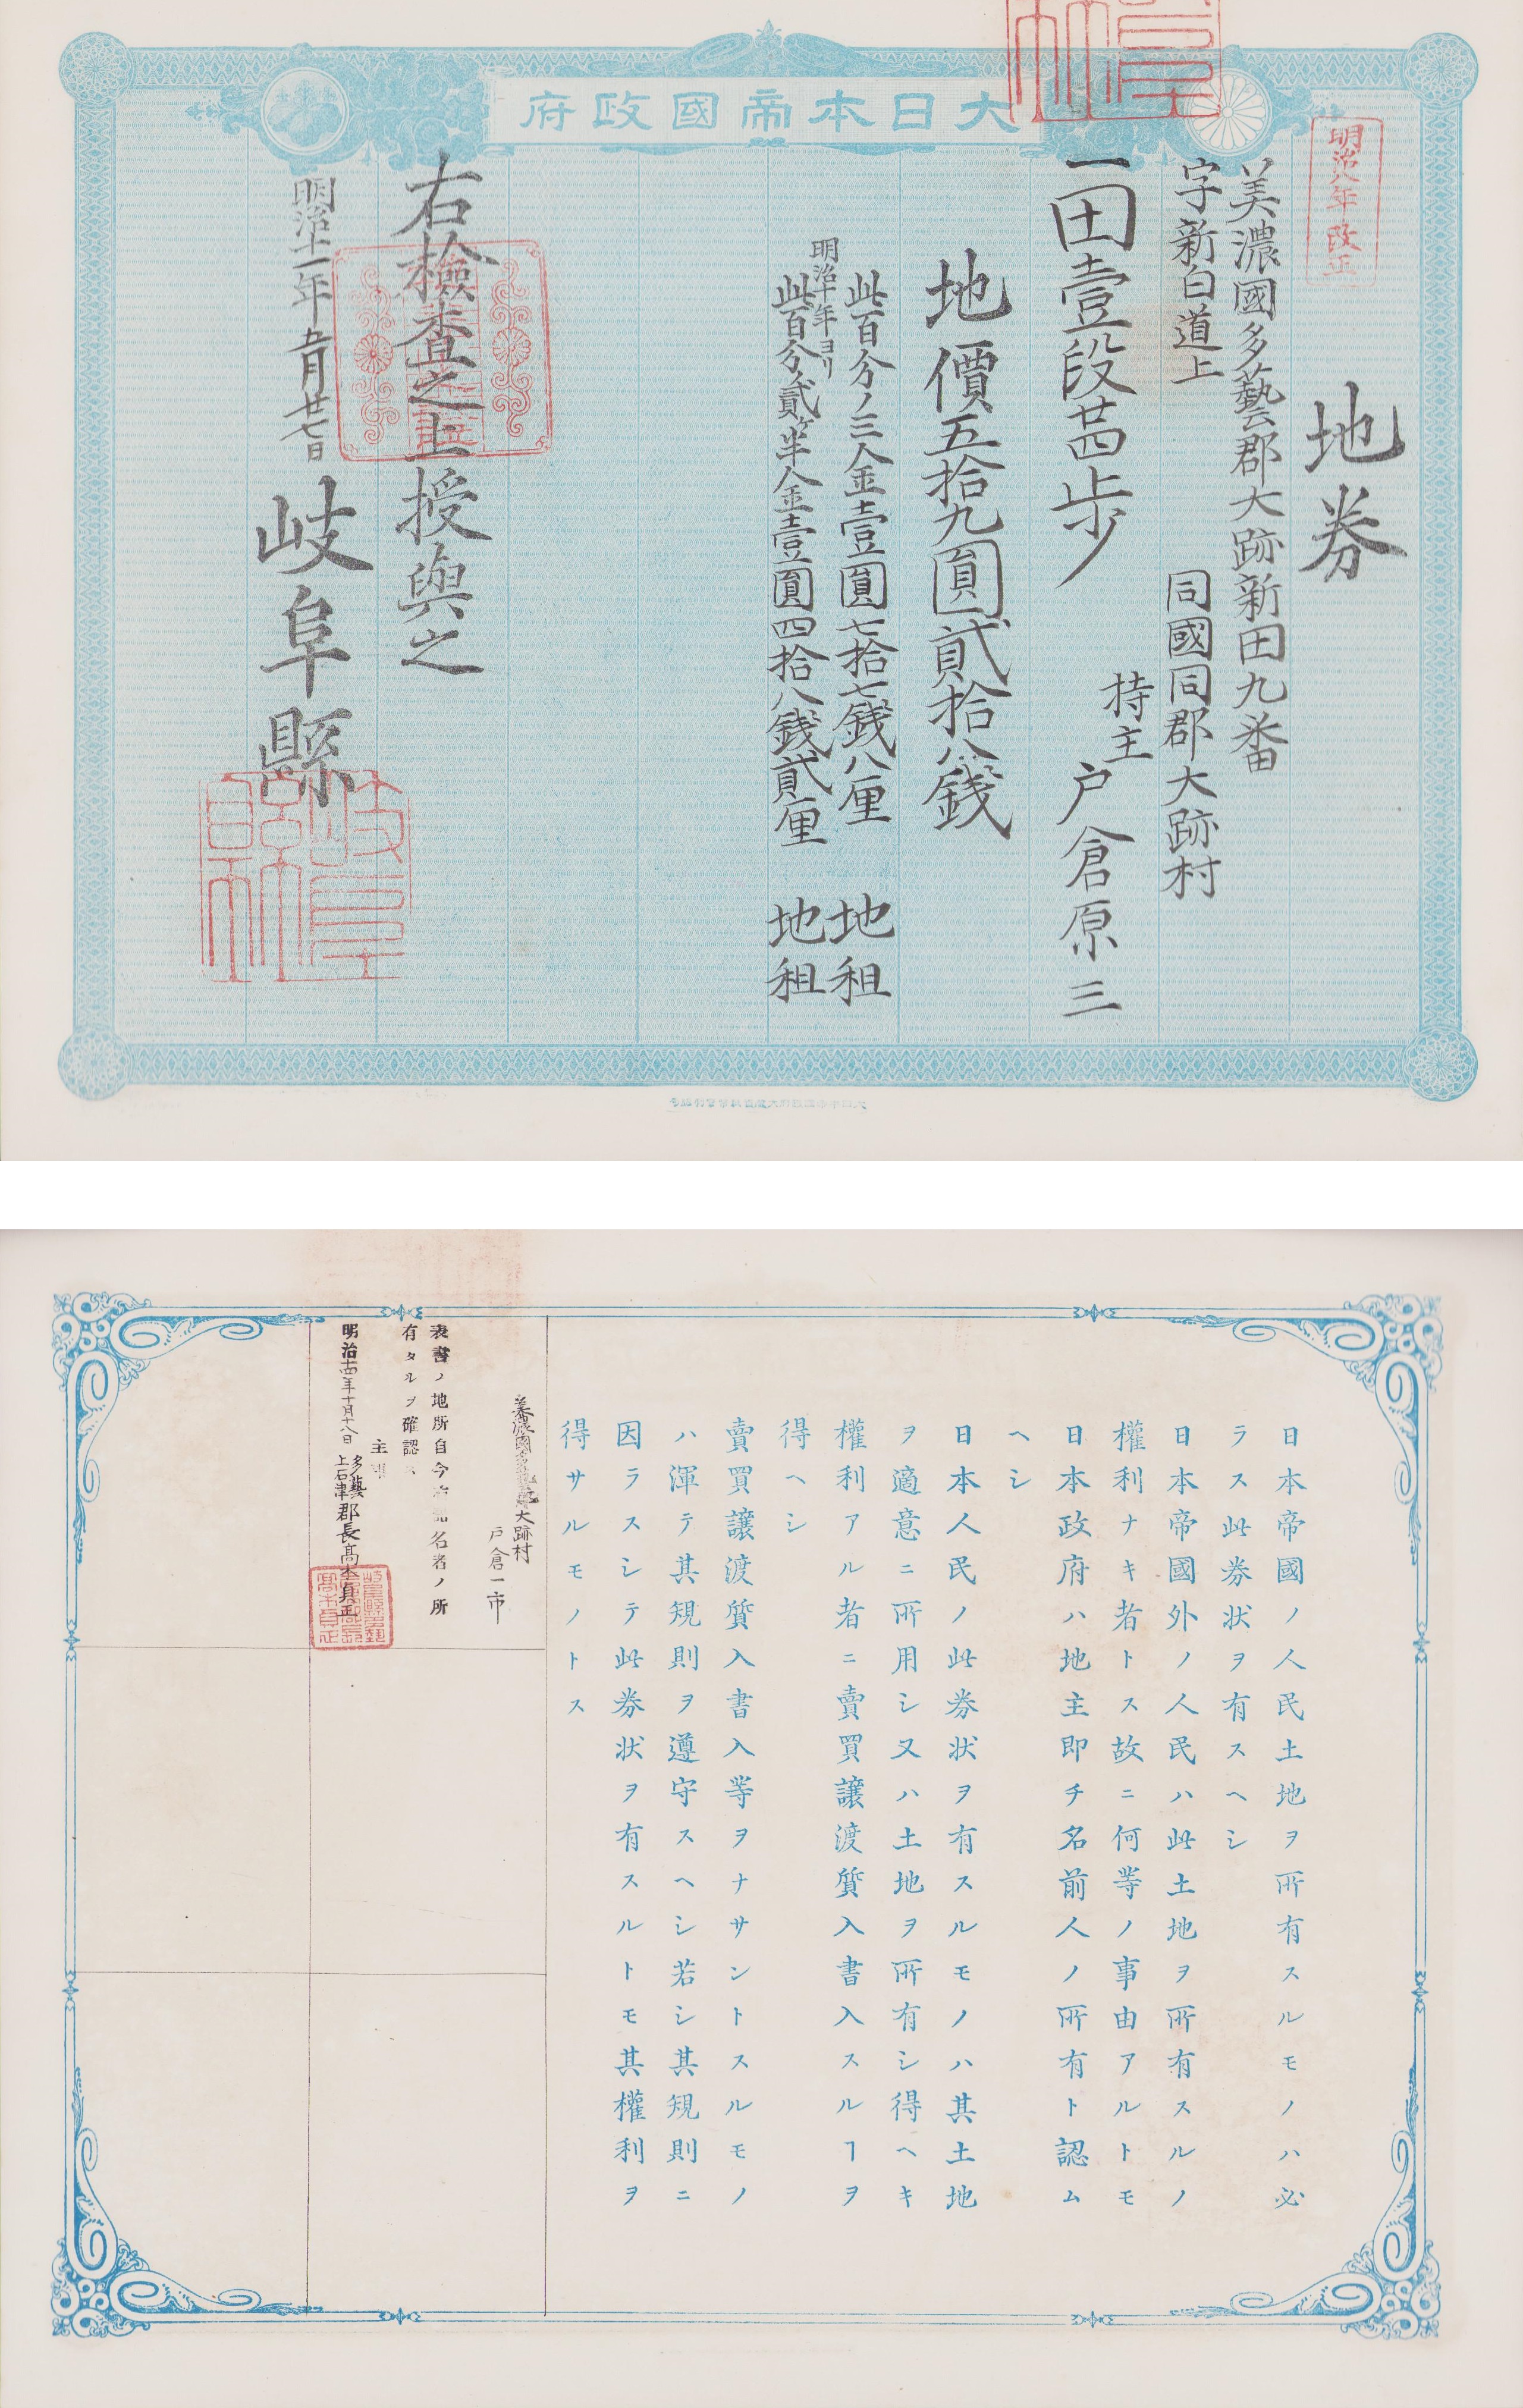 大日本帝國政府
明治八年改正
地券
美濃國多藝郡大跡新田九番
字新白道上
同國同郡大跡村
持主
戸倉原三
一田壹段廿四歩
地價五拾九圓貳拾八錢
此百分ノ三金壹圓七拾七錢八厘 地租
明治十年ヨリ
此百分ノ貳ケ半金壹圓四拾八錢貳厘 地租
右檢査之上授與之
明治十一年五月廿七日
岐阜縣
日本帝國ノ人民土地ヲ所有スルモノハ必
ラス此券状ヲ有スヘシ
日本帝國外ノ人民ハ此土地ヲ所有スルノ
權利ナキ者トス故ニ何等ノ事由アルトモ
日本政府ハ地主即チ名前人ノ所有ト認ム
ヘシ
日本人民ノ此券状ヲ有スルモノハ其土地
ヲ適意ニ所用シ又ハ土地ヲ所有シ得ヘキ
權利アル者ニ賣買讓渡質入書入スルヿヲ
得ヘシ
賣買讓渡質入書入等ヲナサントスルモノ
ハ渾テ其規則ヲ遵守スヘシ若シ其規則ニ
因ラスシテ此券状ヲ有スルトモ其權利ヲ
得サルモノトス
美濃國多藝郡大跡村
戸倉一市
表書ノ地所自今前記名者ノ所
有タルヲ確認ス
主
明治十四年十月十八日
多藝
上石津
郡長高木真正